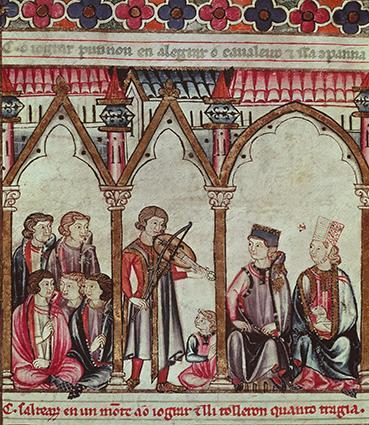 C. o iograr punnou en alegrar o caualeiro ⁊ ssa cõpanna
C. salteará en un mõte aó iograr ⁊ lli tolleron quanto tragia.